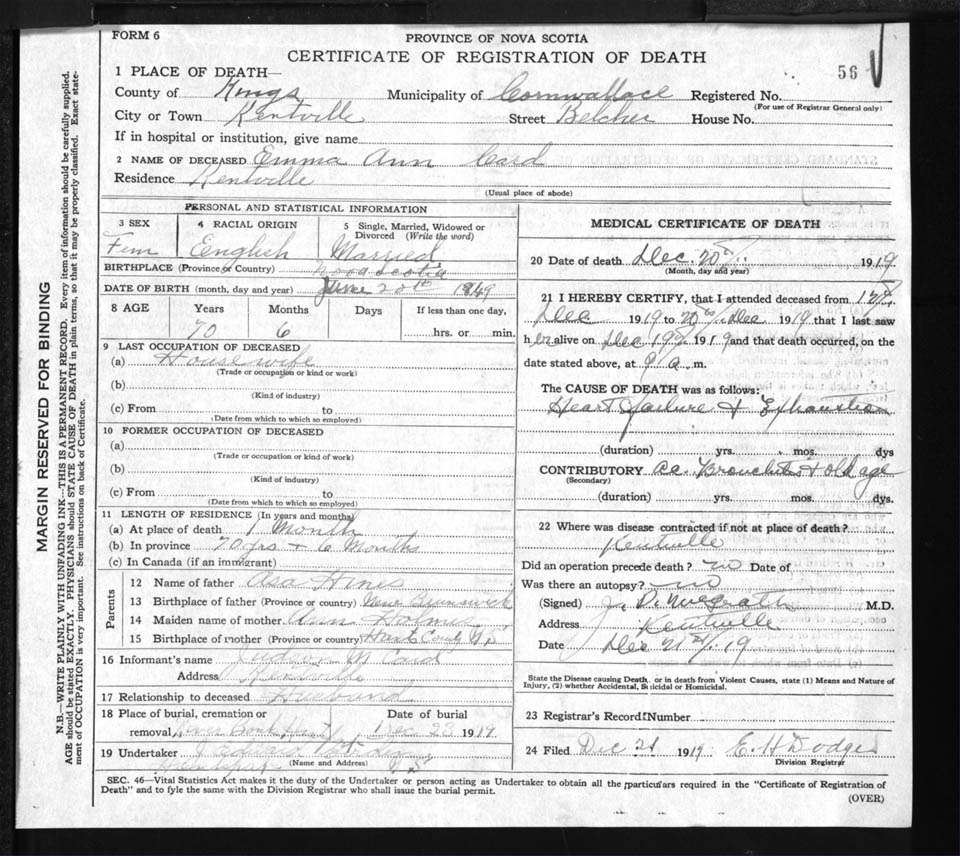 FORM 6
PROVINCE OF NOVA SCOTIA
CERTIFICATE OF REGISTRATION OF DEATH
56
1 PLACE OF DEATH—
County of Kings Municipality of Cornwallace Registered No.
(For use of Registrar General only)
City or Town Kentville Street Belcher House No.
If in hospital or institution, give name
2 NAME OF DECEASED Emma Ann Card
Residence Kentville
(Usual place of abode)
PERSONAL AND STATISTICAL INFORMATION
3 SEX 4 RACIAL ORIGIN 5 Single, Married, Widowed or Divorced (Write the word)
Fem English Married
BIRTHPLACE (Province or Country) Nova Scotia
DATE OF BIRTH (month, day and year) June 20th 1849
8 AGE Years Months Days If less than one day,
70 6 hrs. or min.
9 LAST OCCUPATION OF DECEASED
(a) House wife
(Trade or occupation or kind or work)
(b)
(Kind of industry)
(c) From to
(Date from which to which so employed)
10 FORMER OCCUPATION OF DECEASED
(a)
(Trade or occupation or kind of work)
(b)
(Kind of industry)
(c) From to
(Date from which to which so employed)
11 LENGTH OF RESIDENCE (In years and months)
(a) At place of death 1 Month
(b) In province 70 yrs + 6 Months
(c) In Canada (if an immigrant)
Parents
12 Name of father Asa Hines
13 Birthplace of father (Province or country) New Brunswick
14 Maiden name of mother Ann Holmes
15 Birthplace of mother (Province or country) Hants County N S
16 Informant's name Judson M Card
Address Kentville
17 Relationship to deceased Husband
18 Place of burial, cremation or Date of burial
removal, Dec 23 1919
19 Undertaker
(Name and Address)
MEDICAL CERTIFICATE OF DEATH
20 Date of death Dec. 20th 1919
(Month, day and year)
21 I HEREBY CERTIFY, that I attended deceased from 12th
Dec 1919 to 20th Dec 1919 that I last saw
her alive on Dec 19th 1919 and that death occurred, on the
date stated above, at 9 a. m.
The CAUSE OF DEATH was as follows:
Heart failure + Exhaustion
(duration) yrs. mos. dys
CONTRIBUTORY ac. Bronchitis + old age
(Secondary)
(duration) yrs. mos. dys.
22 Where was disease contracted if not at place of death?
Kentville
Did an operation precede death? no Date of
Was there an autopsy? no
(Signed) J. P. McGrath M.D.
Address Kentville
Date Dec 21st/19
State the Disease causing Death, or in death from Violent Causes, state (1) Means and Nature of
Injury, (2) whether Accidental, Suicidal or Homicidal.
23 Registrar's Record Number
24 Filed Dec 21 1919 E. H Dodge
Division Registrar
SEC. 46—Vital Statistics Act makes it the duty of the Undertaker or person acting as Undertaker to obtain all the particulars required in the "Certificate of Registration of
Death" and to fyle the same with the Division Registrar who shall issue the burial permit.
(OVER)
MARGIN RESERVED FOR BINDING
N.B.—WRITE PLAINLY WITH UNFADING INK—THIS IS A PERMANENT RECORD. Every item of information should be carefully supplied.
AGE should be stated EXACTLY. PHYSICIANS should STATE CAUSE OF DEATH in plain terms, so that it may be properly classified. Exact state-
ment of OCCUPATION is very important. See instructions on back of Certificate.